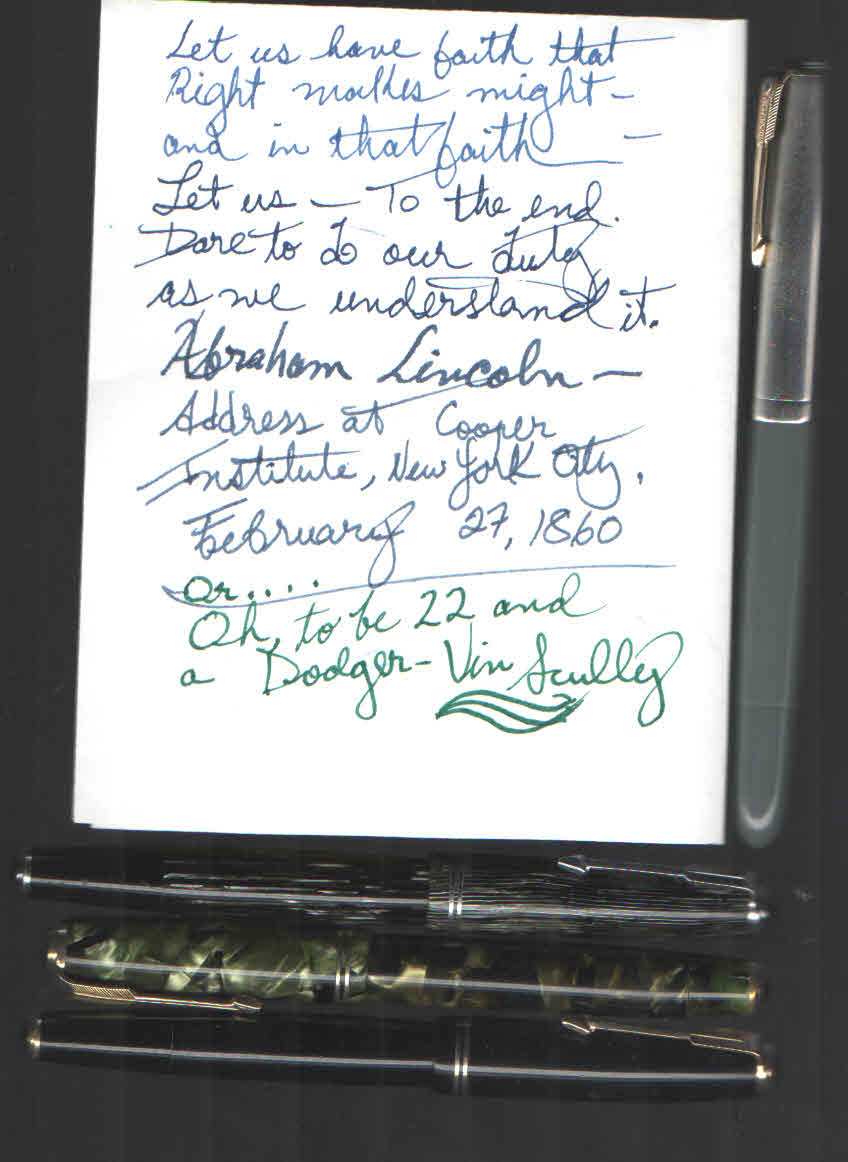 Let us have faith that
Right makes might –
and in that faith –
Let us – To the end.
Dare to do our duty
as we understand it.
Abraham Lincoln –
Address at Cooper
Institute, New York City.
February 27, 1860
Or....
Oh, to be 22 and
a Dodger - Vin Scully